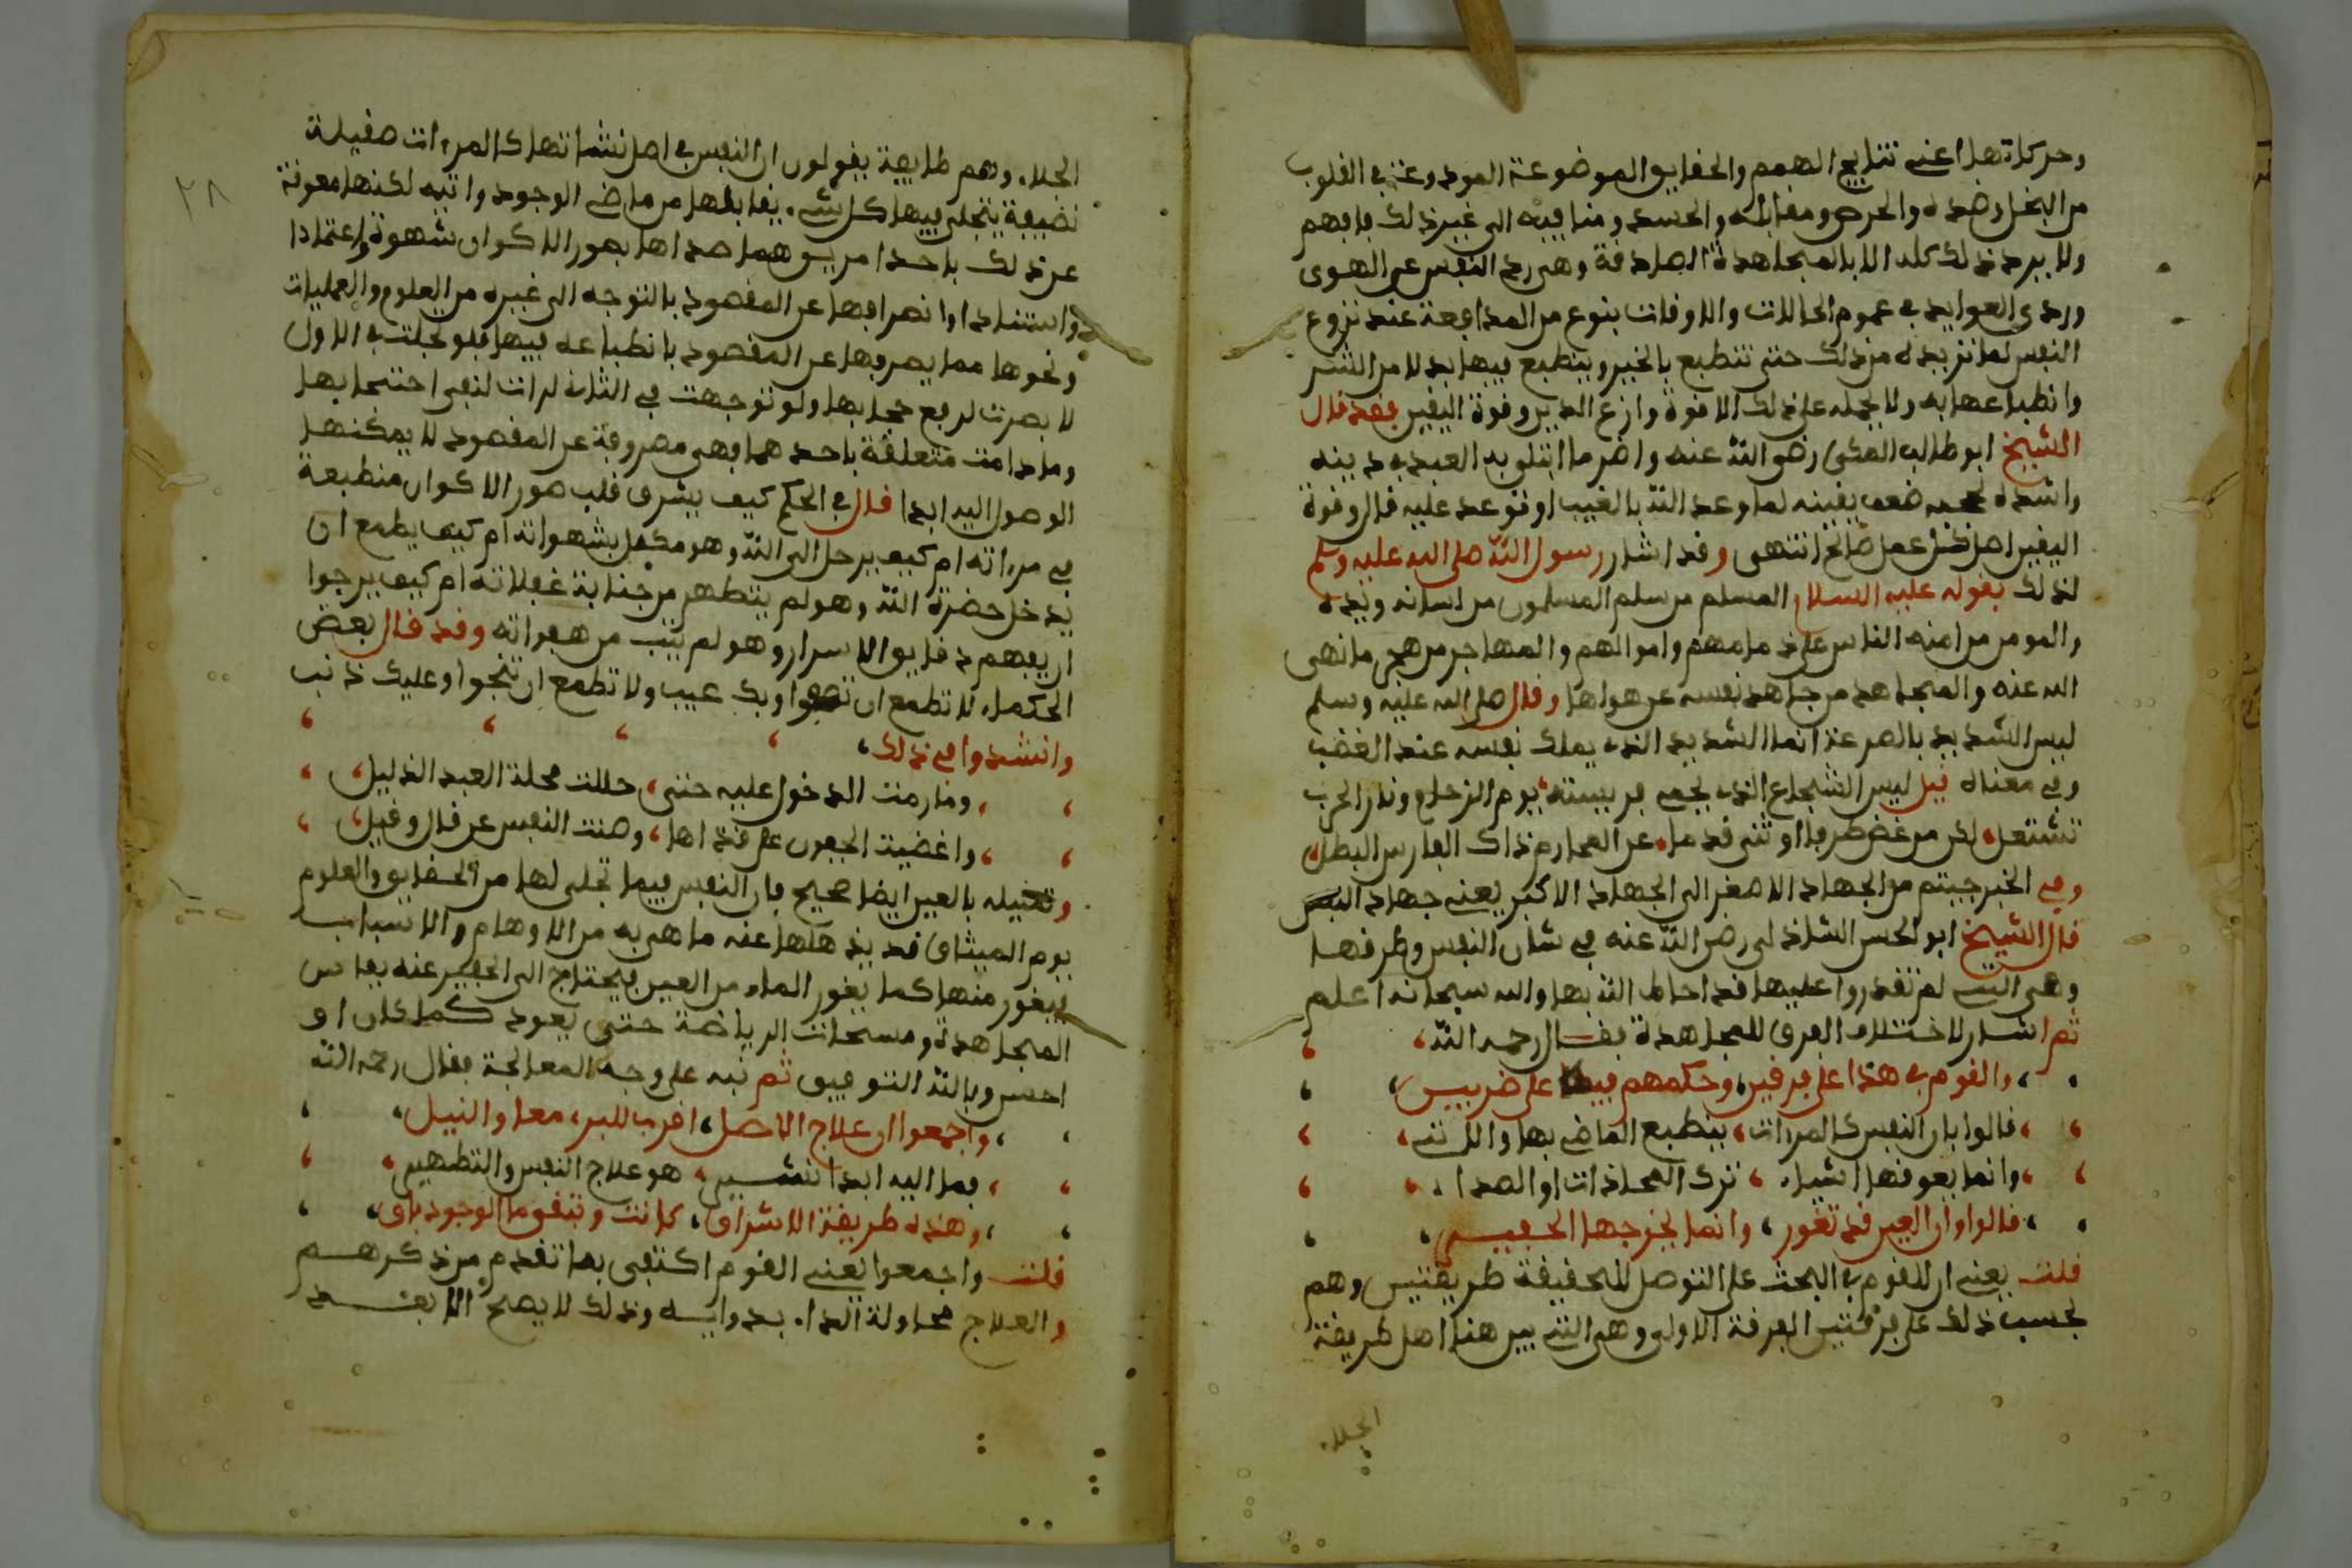 وحركاتها اعني نتايج الهمم والحقايق الموضوعة المودوعة في القلوب
من البخل وضده والحرص ومقابله والحسد ومنافيه الى غير ذلك فافهم
ولا يرد ذلك كله الا بالمجاهدة الصادقة وهي رد النفس عن الهوى
وردي العوايد في عموم الحالات والاوقات بنوع من المدافعة عند نزوع
النفس لما تريده من ذلك حتى تنطبع بالخير وينطبع فيها بدلا من الشر
وانطباعها به ولا يحمله على ذلك الا قوة وازع الدين وقوة اليقين فقد قال
الشيخ ابو طالب المكي رضي الله عنه واضر ما ابتلي به العبد في دينه
واشده ضعف يقينه لما وعد الله بالغيب او توعد عليه قال وقوة
اليقين اصل كل عمل صالح انتهى وقد اشار رسول الله صلى الله عليه وسلم
لذلك بقوله عليه السلام المسلم من سلم المسلمون من لسانه ويده
والمومن من امنه الناس على دمامهم واموالهم والمهاجر من هجر ما نهى
الله عنه والمجاهد من جاهد نفسه عن هواها وقال صلى الله عليه وسلم
ليس الشديد بالصرعة انما الشديد الذي يملك نفسه عند الغضب
وفي معناه قيل ليس الشجاع الذي يحمي فريسته يوم الزحام ونار الحرب
تشتعل، لكن من غض طرفا او ثنى قدما، عن المحارم ذاك الفارس البطل
وفي الخبر جيتم من الجهاد الاصغر الى الجهاد الاكبر يعني جهاد النفس
قال الشيخ ابو الحسن الشاذلي رضي الله عنه في شان النفس وطرقها
وهي التي لم تقدروا عليها قد احاط الله بها والله سبحانه اعلم
ثم اشار لاختلاف الفرق للمجاهدة فقال رحمه الله،
، والقوم في هذا على فرقين، وحكمهم فيها على ضربين،
، قالوا بان النفس كالمرءات، ينطبع الماضي بها والاتي،
، وانما يعوقها اشياء، ترك المحاذات او الصدا،
، قالوا وان العين قد تغور، وانما يخرجها الحفير،
قلت يعني ان للقوم في البحث على التوصل للحقيقة طريقتين وهم
بحسب ذلك على فرقتين الفرقة الاولى وهي التي بين هنا اهل طريقة
الجلاء
٢٨
الجلاء وهم طايفة يقولون ان النفس في اصل نشاتها كالمرءات صقيلة
نضيفة يتجلى فيها كل شيء يقابلها من ماضي الوجود واتيه لكنها معوقة
عن ذلك باحد امرين هما صداها بصور الاكوان شهوة واعتمادا
واستنادا او انصرافها عن المقصود بالتوجه الى غيره من العلوم والعمليات
ونحوها مما يصرفها عن المقصود بانطباعه فيها فلو تجلت في الاول
لابصرت لرفع حجابها ولو توجهت في الثاني لرات لنفي احتجابها
وما دامت متعلقة باحدهما فهي مصروفة عن المقصود لا يمكنها
الوصول اليه ابدا قال في الحكم كيف يشرق قلب صور الاكوان منطبعة
في مرءاته ام كيف يرحل الى الله وهو مكبل بشهواته ام كيف يطمع ان
يدخل حضرة الله وهو لم يتطهر من جنابة غفلاته ام كيف يرجوا
ان يفهم دقايق الاسرار وهو لم يتب من هفواته وقد قال بعض
الحكماء لا تطمع ان تصحوا وبك عيب ولا تطمع ان تنجوا وعليك ذنب
وانشدوا في ذلك،
، وما رمت الدخول عليه حتى، حللت محلة العبد الذليل،
، واغضيت الجفون على قذاها، وصنت النفس عن قال وقيل،
وتمثيله بالعين ايضا صحيح فان النفس فيما تجلى لها من الحقايق والعلوم
يوم الميثاق قد يذهلها عنه ما هي به من الاوهام والاسباب
فيغور منها كما يغور الماء من العين فيحتاج الى الحفير عنه بفاس
المجاهدة ومسحات الرياضة حتى يعود كما كان او
احسن وبالله التوفيق ثم نبه على وجه المعالجة فقال رحمه الله
، واجمعوا ان علاج الاصل، اقرب للبر، معا والنيل،
، فما اليه ابدا نشير، هو علاج النفس والتطهير،
، وهذه طريقة الاشراق، كانت وتبقى ما الوجود باق،
قلت واجمعوا يعني القوم اكتفى بما تقدم من ذكرهم
والعلاج محاولة الداء بدوايه وذلك لا يصح الا بعد